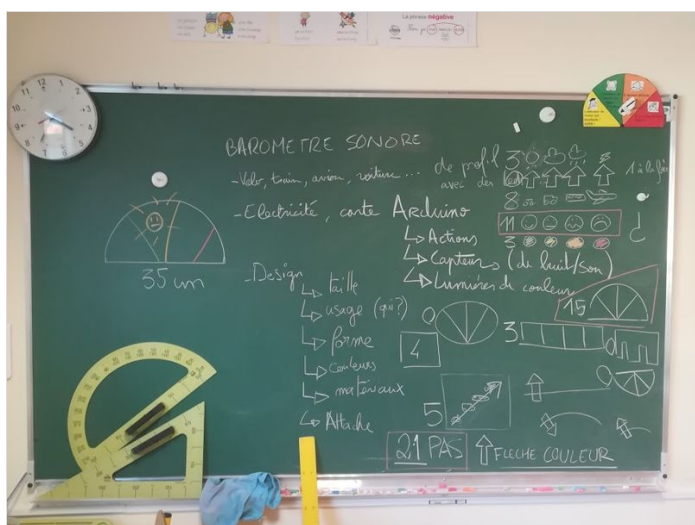 La phrase négative
12
11
1
10
2
9
3
8
4
7
5
6
BAROMETRE SONORE
- Vélo, train, avion, voiture...
de profil
avec des
3
1 à la fois
- Electricité, carte Arduino
8
11
?
↳ Actions
3
↳ Capteurs (de bruit/son)
↳ Lumières de couleur
35 cm
- Design
↳ taille
↳ usage (qui?)
↳ forme
↳ Couleurs
↳ matériaux
↳ Attache
15
0
3
4
0
5
21 PAS
FLECHE COULEUR